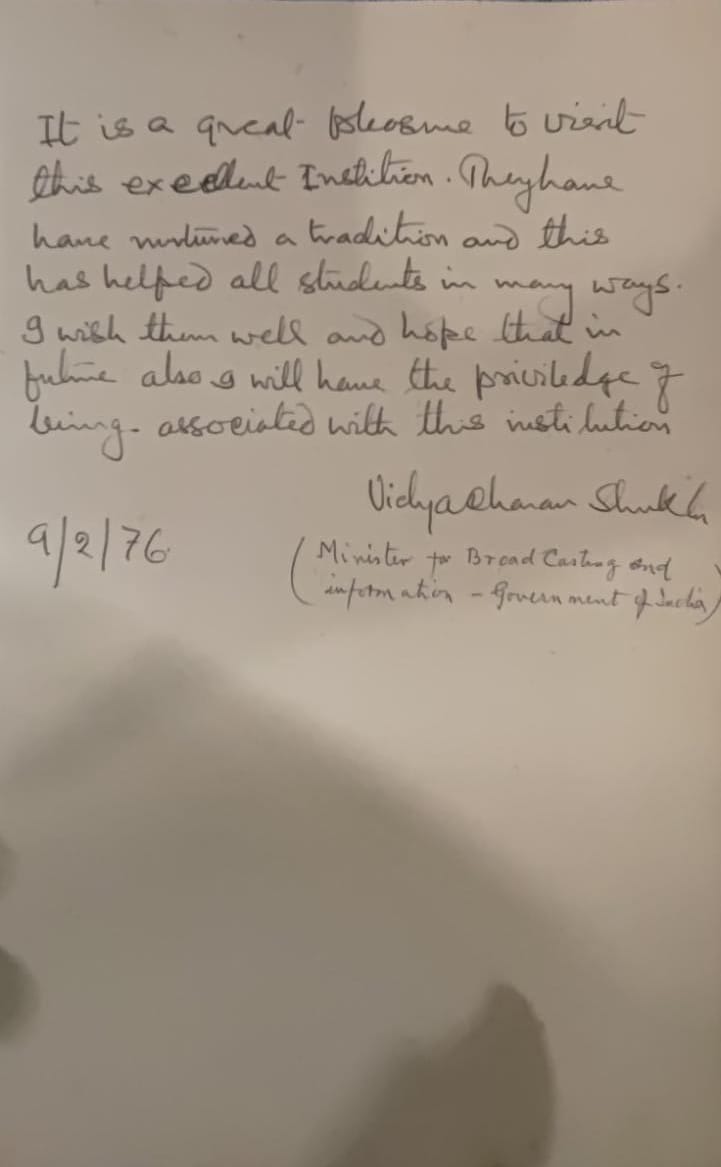 It is a great pleasure to visit
this excellent Institution. They have
have nurtured a tradition and this
has helped all students in many ways.
I wish them well and hope that in
future also I will have the priviledge of
being associated with this institution
Vidya Charan Shukla
9/2/76
(Minister for BroadCasting and
information - Government of India)